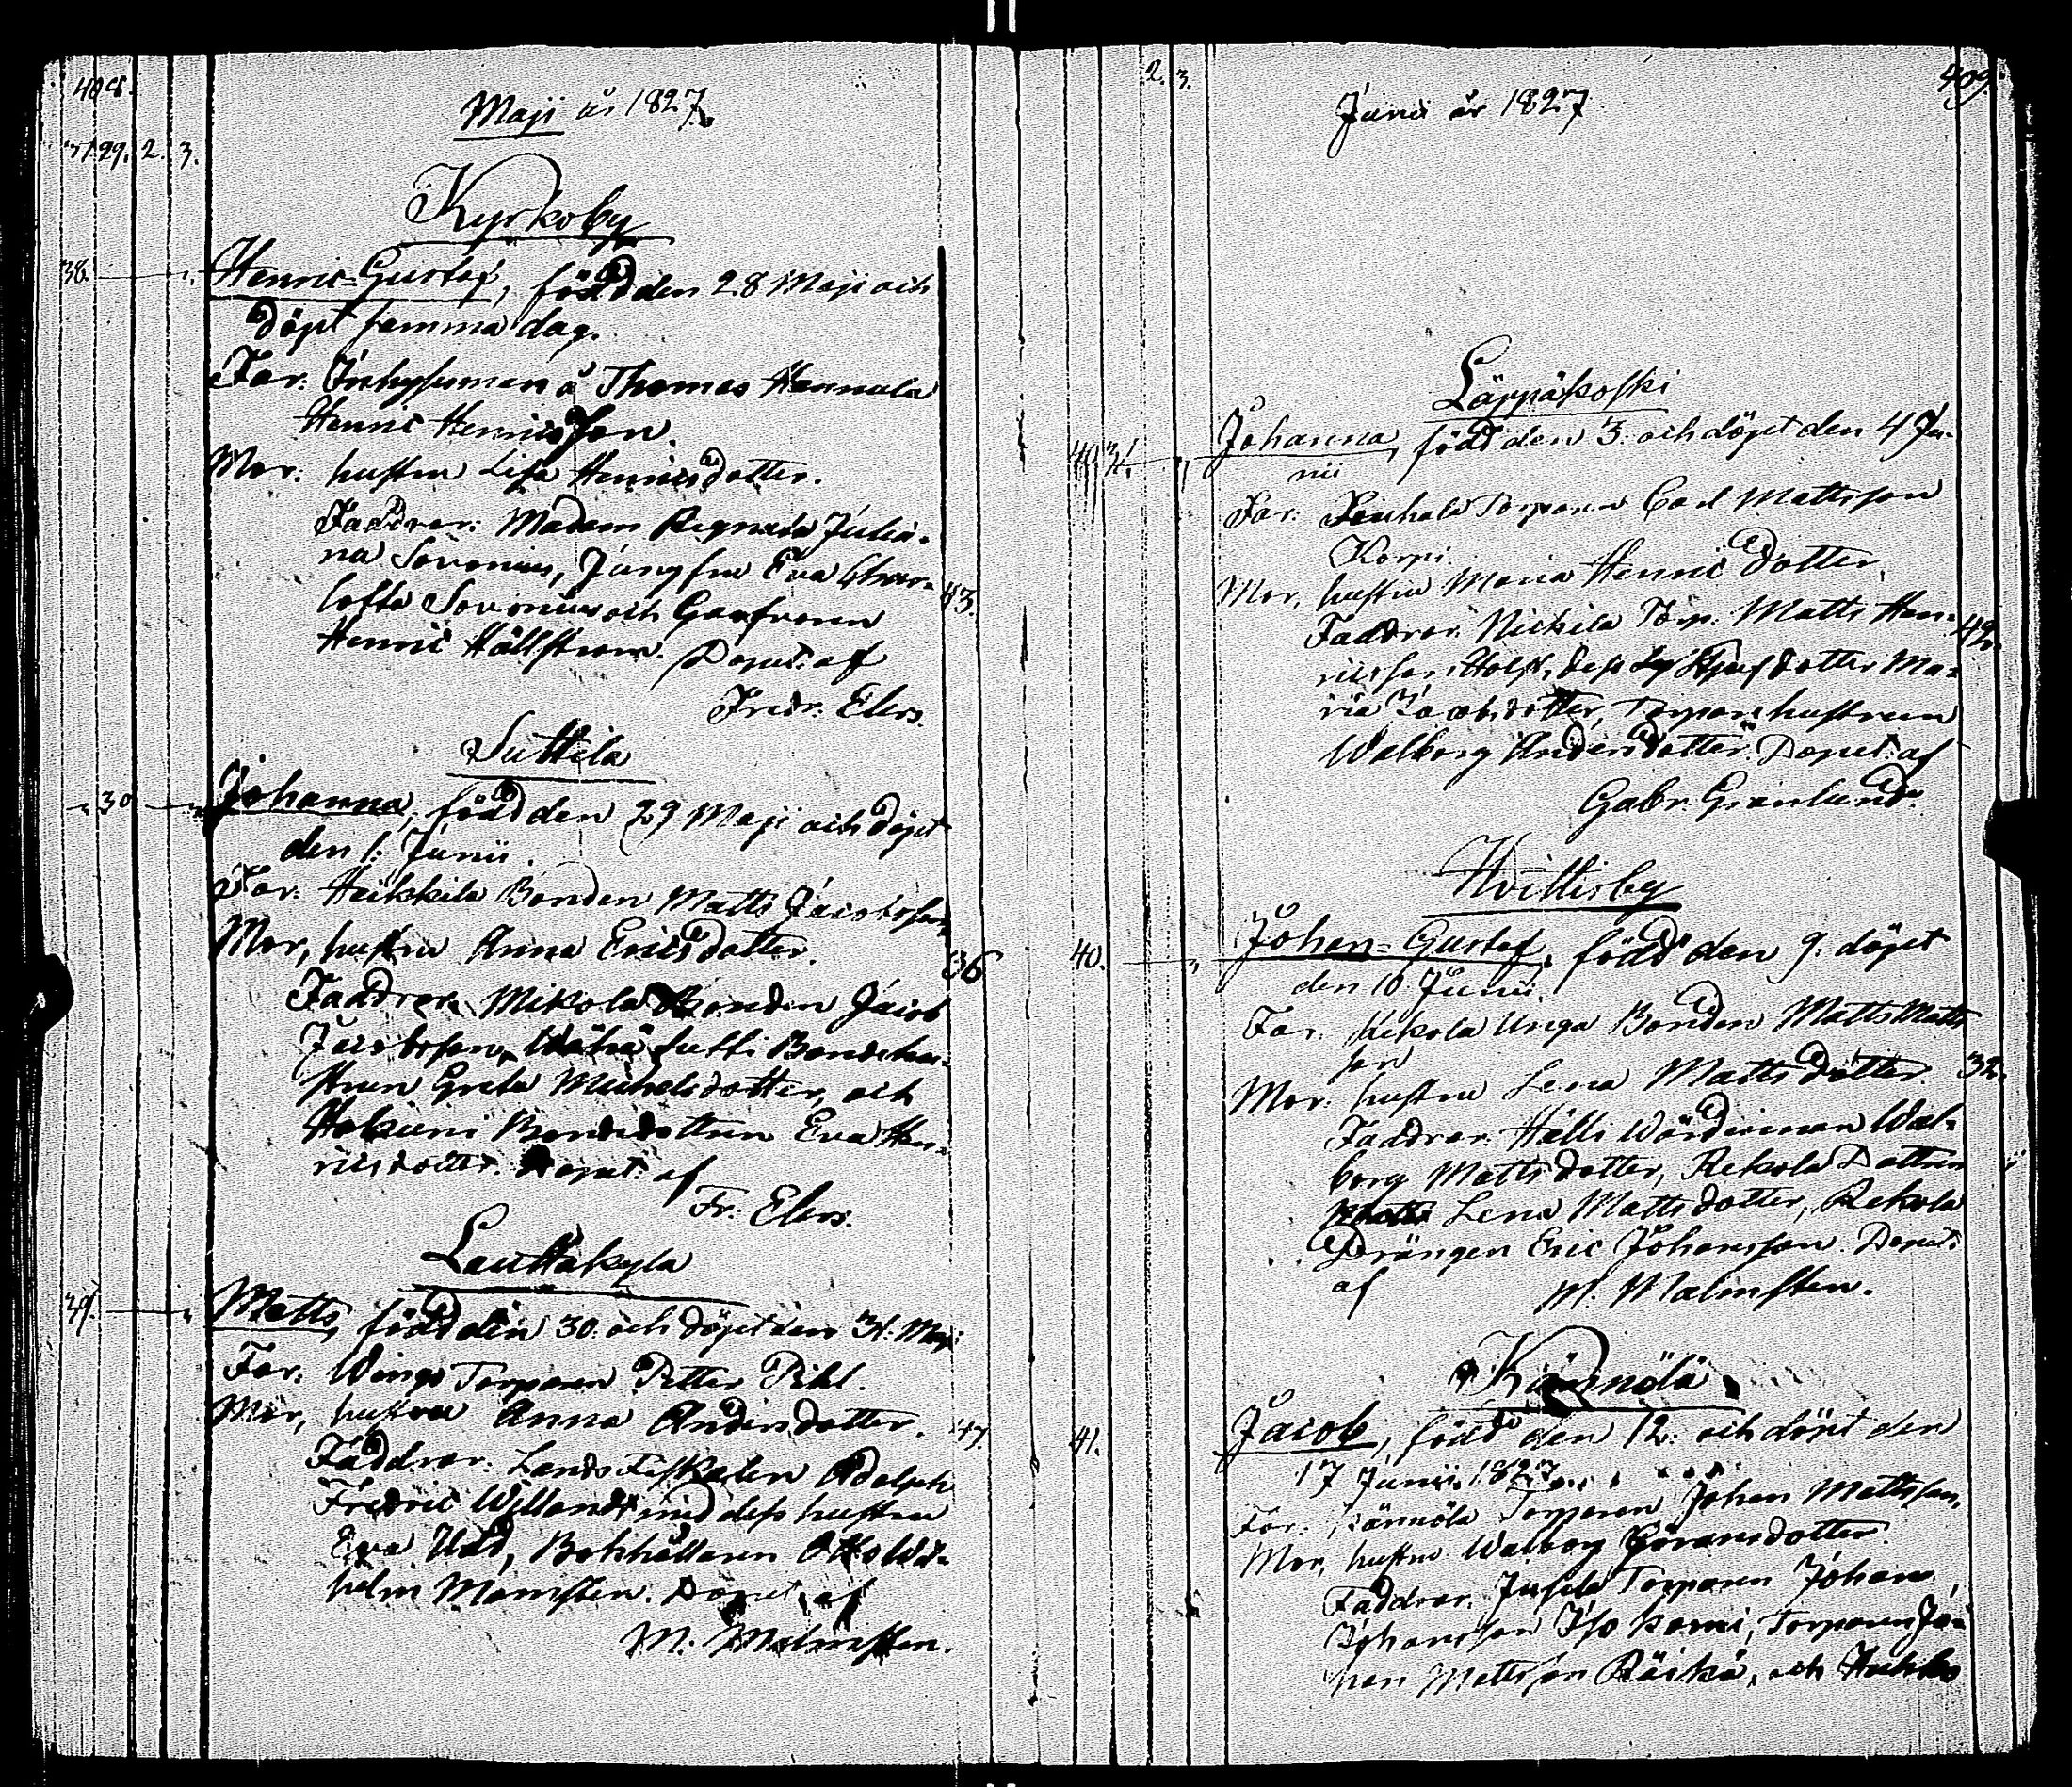 408.
Maji år 1827.
37. 29. 2. 3.
Kyrkoby
38. Henric-Gustaf, född den 28 Maji och
döpt samma dag.
Far: Inhysesman å Thomas Hannula
Henric Henricsson.
Mor: hustru Lisa Henricsdotter.
Faddrar: Madam Regnela Julia-
na Sovonius, Jungfru Eva Char-
lotta Sovonius och Garfvaren 43.
Henric Hällström. Döpt: af
Fredr. Elers.
Suttila
30 Johanna, född den 29 Maji och döpt
den 1: Junii.
Far: Heikkila Bonden Matts Jacobsson,
Mor, hustru Anna Ericsdotter. 36
Faddrar Mikola Bonden Jacob
Jacobsson, Wähä Sutti Bondehu-
strun Greta Michelsdotter, och
Hakuni Bondedottren Eva Hen-
ricsdotter. Döpt: af
Fr: Elers.
Lauttakyla
39. Matts, född den 30. och döpt den 31. Maji
Far: Wingo Torparen Petter Pihl.
Mor, hustru Anna Andersdotter. 47.
Faddrar: Lands Fiskalen Adolph
Fredric Willandt med dess hustru
Eva Udd, Bokhållaren Otto Wil-
helm Mamsten. Döpt af
M. Malmsten.
2. 3. 409.
Junii år 1827
Läppäkoski
31. Johanna, född den 3. och döpt den 4 Ju-
nii
Far: Torparen Carl Mattsson
Korpi.
Mor, hustru Maria Henricdotter.
Faddrar: Nickila Torp. Matts Hen- 42.
ricsson Holst, dess Maria Jacobsdotter, Torparehustrun
Walborg Andersdotter. Döpt: af
Gabr: Grönlund.
Hvittisby
40. Johan-Gustaf, född den 9. döpt
den 10 Junii.
Far: Rekola Unga Bonden Matts Matts
son
Mor: hustru Lena Mattsdotter. 32.
Faddrar: Hälli Wärdinnan Wal-
borg Mattsdotter, Rekola Dottren
Lena Mattsdotter, Rekola
Drängen Eric Johansson. Döpt:
af M. Malmsten.
Kännölä
41. Jacob, född den 12. och döpt den
17 Junii 1827.
Far: Kännöla Torparen Johan Mattsson,
Mor, hustru Walborg Göransdotter.
Faddrar: Torparen Johan
Johansson Isokorni, Torparen Jo-
han Mattsson Räikä, och